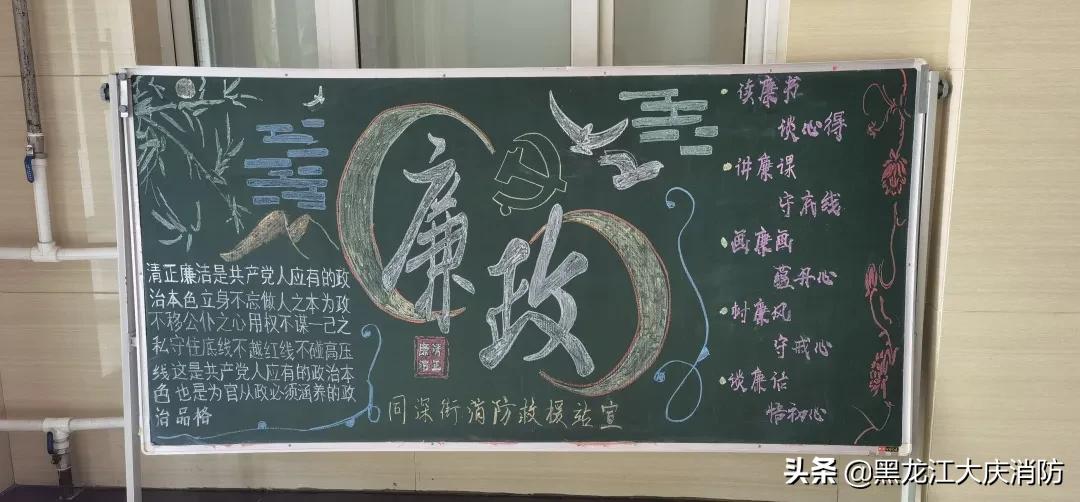 廉政
清正廉洁是共产党人应有的政
治本色立身不忘做人之本为政
不移公仆之心用权不谋一己之
私守住底线不越红线不碰高压
线这是共产党人应有的政治本
色也是为官从政必须涵养的政
治品格
清正
廉洁
同深街消防救援站宣
读廉书
谈心得
讲廉课
守廉线
画廉画
蕴丹心
树廉风
守戒心
谈廉洁
悟初心
头条 @黑龙江大庆消防